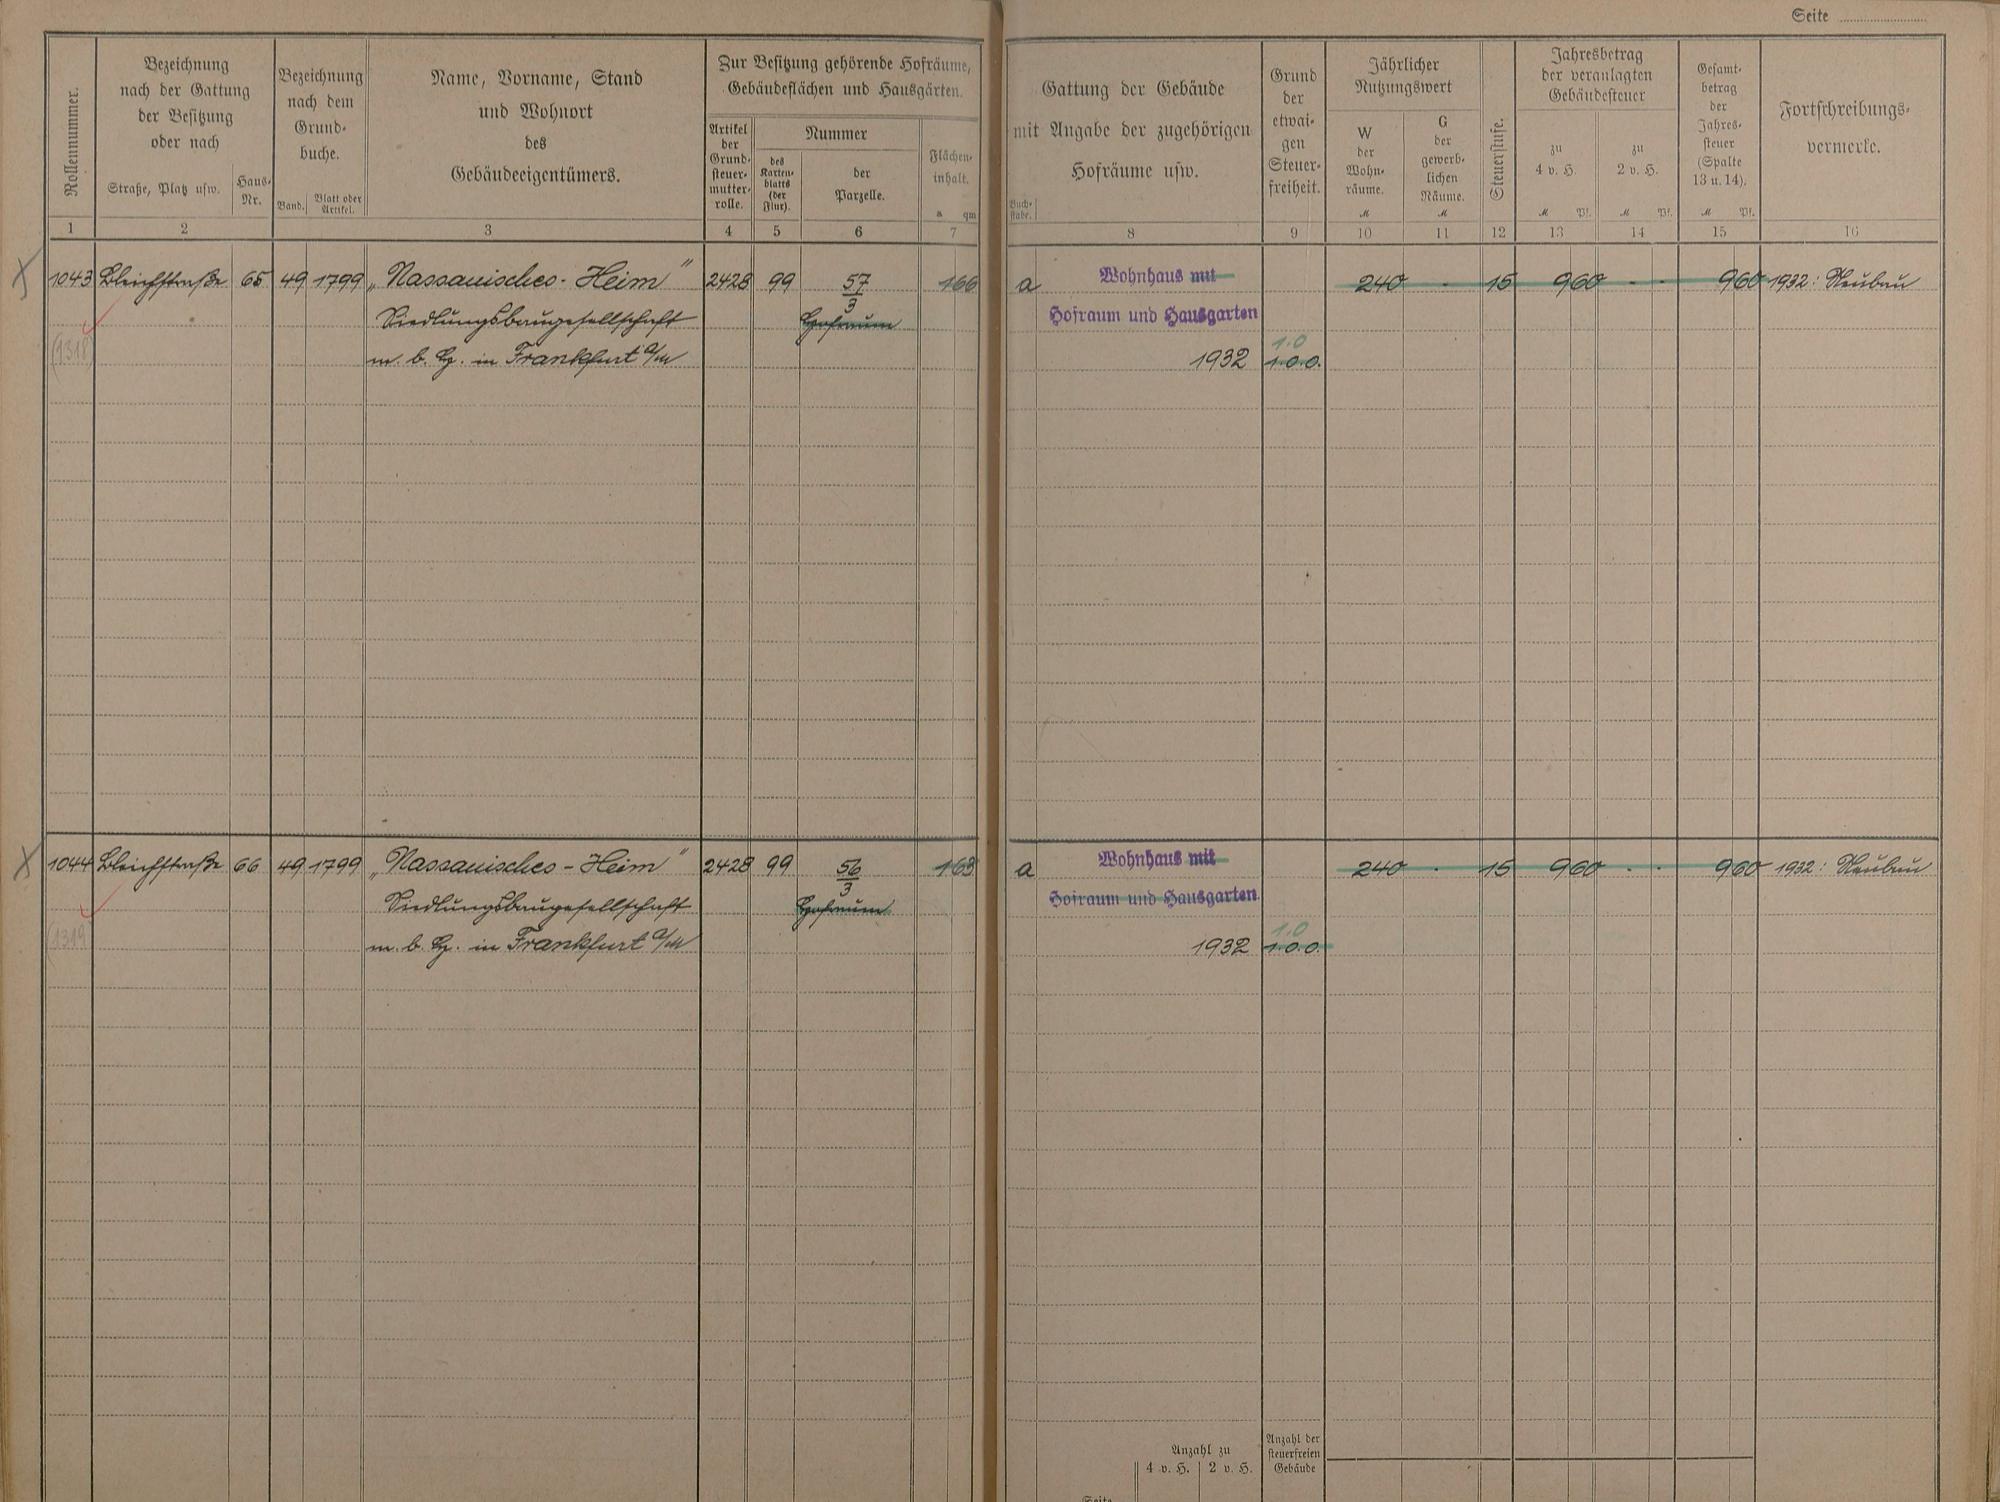 Seite
Rollennummer.
Bezeichnung
nach der Gattung
der Besitzung
oder nach
Straße, Platz usw.
Haus-
Nr.
Bezeichnung
nach dem
Grund-
buche.
Band.
Blatt oder
Artikel.
Name, Vorname, Stand
und Wohnort
des
Gebäudeeigentümers.
Zur Besitzung gehörende Hofräume,
Gebäudeflächen und Hausgärten.
Artikel
der
Grund-
steuer-
mutter-
rolle.
Nummer
des
Karten-
blatts
(der
Flur).
der
Parzelle.
Flächen-
inhalt.
a qm
Gattung der Gebäude
mit Angabe der zugehörigen
Hofräume usw.
Buch-
stabe.
Grund
der
etwai-
gen
Steuer-
freiheit.
Jährlicher
Nutzungswert
W
der
Wohn-
räume.
M
G
der
gewerb-
lichen
Räume.
M
Steuerstufe.
Jahresbetrag
der veranlagten
Gebäudesteuer
zu
4 v. H.
M Pf.
zu
2 v. H.
M Pf.
Gesamt-
betrag
der
Jahres-
steuer
(Spalte
13 u. 14).
M Pf.
Fortschreibungs-
vermerke.
1 2 3 4 5 6 7 8 9 10 11 12 13 14 15 16
1043 Bleichstraße 65 49 1799 „Nassauisches-Heim" 2428 99 57/3 166 a Wohnhaus mit 240 - 15 960 - - 960 1932: Neubau
Siedlungsbaugesellschaft Hofraum Hofraum und Hausgarten
(1318) m. b. H. in Frankfurt a/M 1932 1.0.0. 1.0
1044 Bleichstraße 66 49 1799 „Nassauisches-Heim" 2428 99 56/3 163 a Wohnhaus mit 240 - 15 960 - - 960 1932: Neubau
Siedlungsbaugesellschaft Hofraum Hofraum und Hausgarten
(1319) m. b. H. in Frankfurt a/M 1932 1.0.0. 1.0
Anzahl zu
4 v. H. 2 v. H.
Anzahl der
steuerfreien
Gebäude
Seite